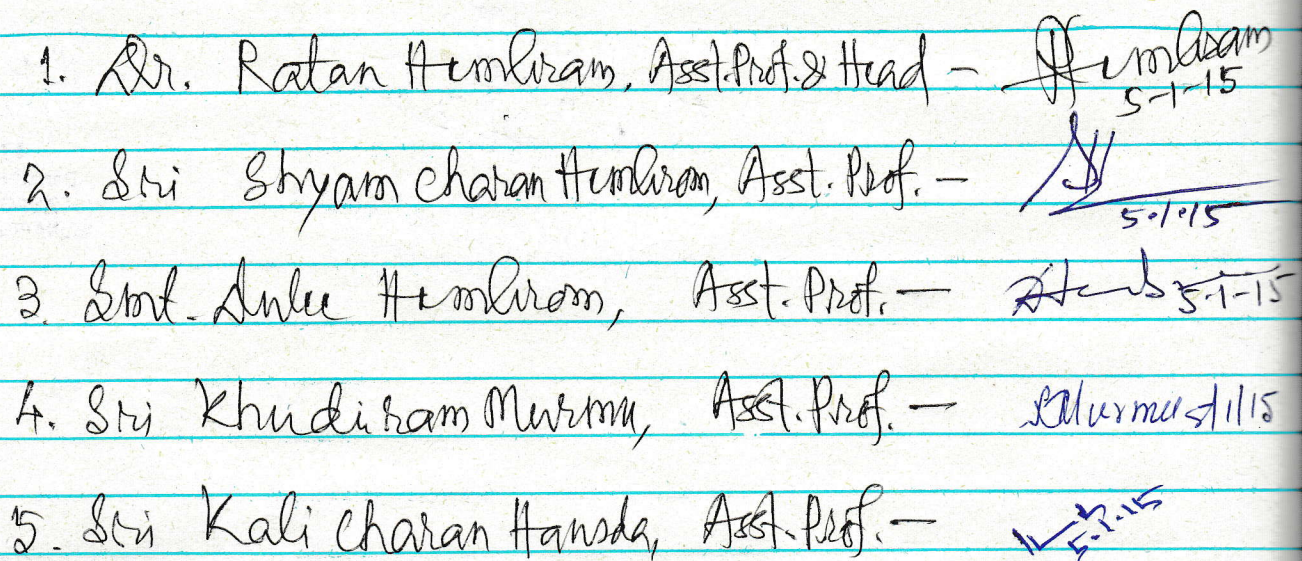 1. Dr. Ratan Hembram, Asst. Prof. & Head - Hembram 5-1-15
2. Sri Shyam Charan Hembrom, Asst. Prof. - 5.1.15
3. Smt. Dulu Hembrom, Asst. Prof. - 5-1-15
4. Sri Khudiram Murmu, Asst. Prof. - KMurmu 5/1/15
5. Sri Kali Charan Hansda, Asst. Prof. - 5.1.15